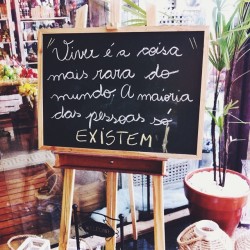 "Viver é a coisa
mais rara do
mundo. A maioria
das pessoas só
EXISTEM"